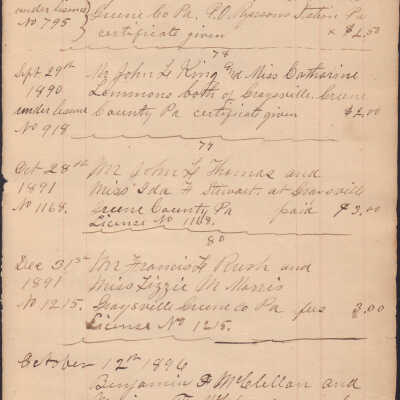 under license
No 795
Greene Co Pa. P.O. Station Pa
certificate given × $2.50
78
Sept 29th Mr John L King and Miss Catharine
1890 Lemmons both of Graysville Greene
under license County Pa certificate given $2.00
No 918
79
Oct 28th Mr John L Thomas and
1891 Miss Ida F Stewart. at Graysville
No 1168. Greene County Pa paid $3.00
License No 1168.
80
Dec 31st Mr Francis L Rush and
1891 Miss Lizzie M Morris
No 1215. Graysville Greene Co Pa fees 3.00
License No 1215.
October 12th 1896
Benjamin F McClellan and